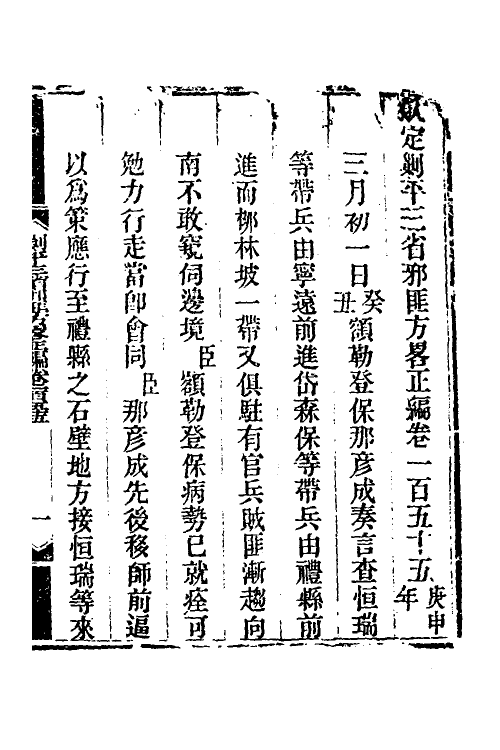 欽定剿平三省邪匪方畧正編卷一百五十五庚申年
三月初一日癸丑額勒登保那彥成奏言查恒瑞
等帶兵由寧遠前進岱森保等帶兵由禮縣前
進而栁林坡一帶又俱駐有官兵賊匪漸趨向
南不敢窺伺邊境臣額勒登保病勢已就痊可
勉力行走當卽會同臣那彥成先後移師前逼
以爲策應行至禮縣之石壁地方接恒瑞等來